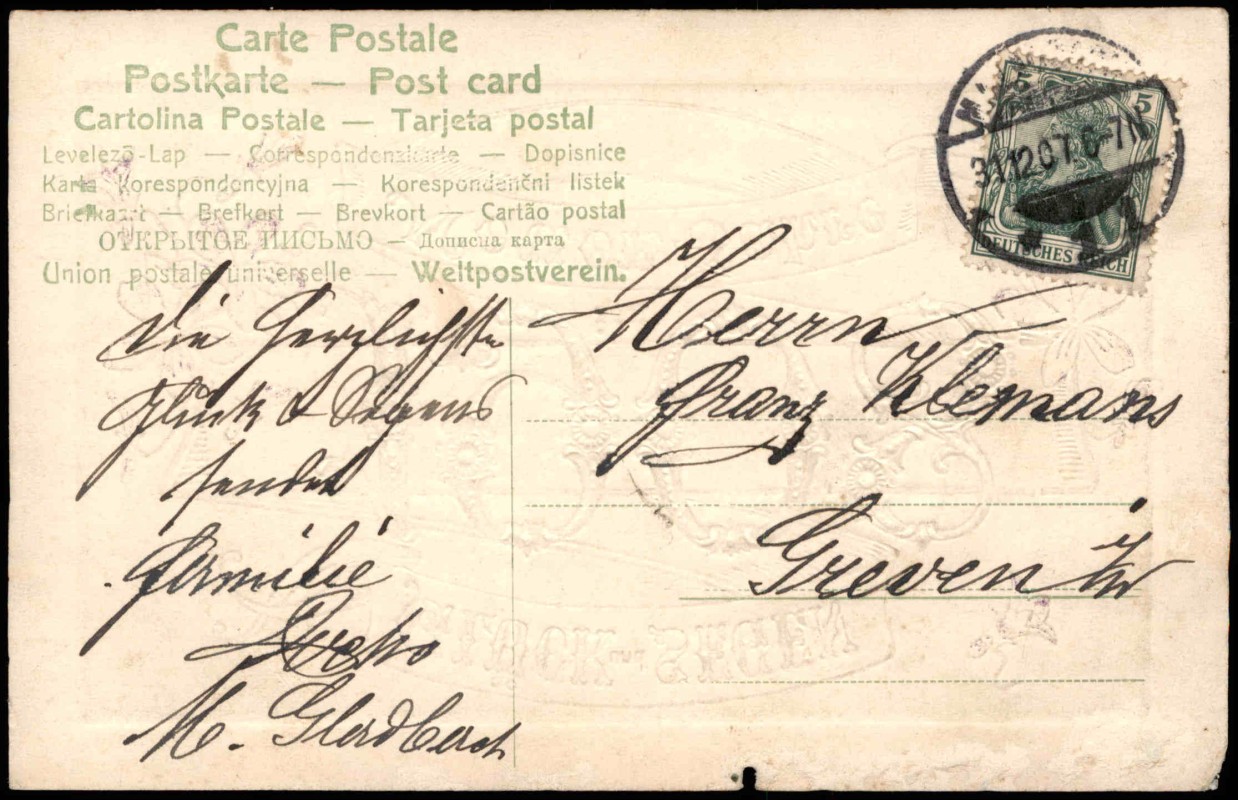 Carte Postale
Postkarte — Post card
Cartolina Postale — Tarjeta postal
Levelező-Lap — Correspondenzkarte — Dopisnice
Karta Korespondencyjna — Korespondenční listek
Briefkaart — Brefkort — Brevkort — Cartão postal
ОТКРЫТОЕ ПИСЬМО — Дописна карта
Union postale universelle — Weltpostverein.
5 5
31.12.07. 6-7N
DEUTSCHES REICH
Die herzlichsten
Glück & Segens
sendet
Familie
M. Gladbach
Herrn
Franz Klemans
Greven